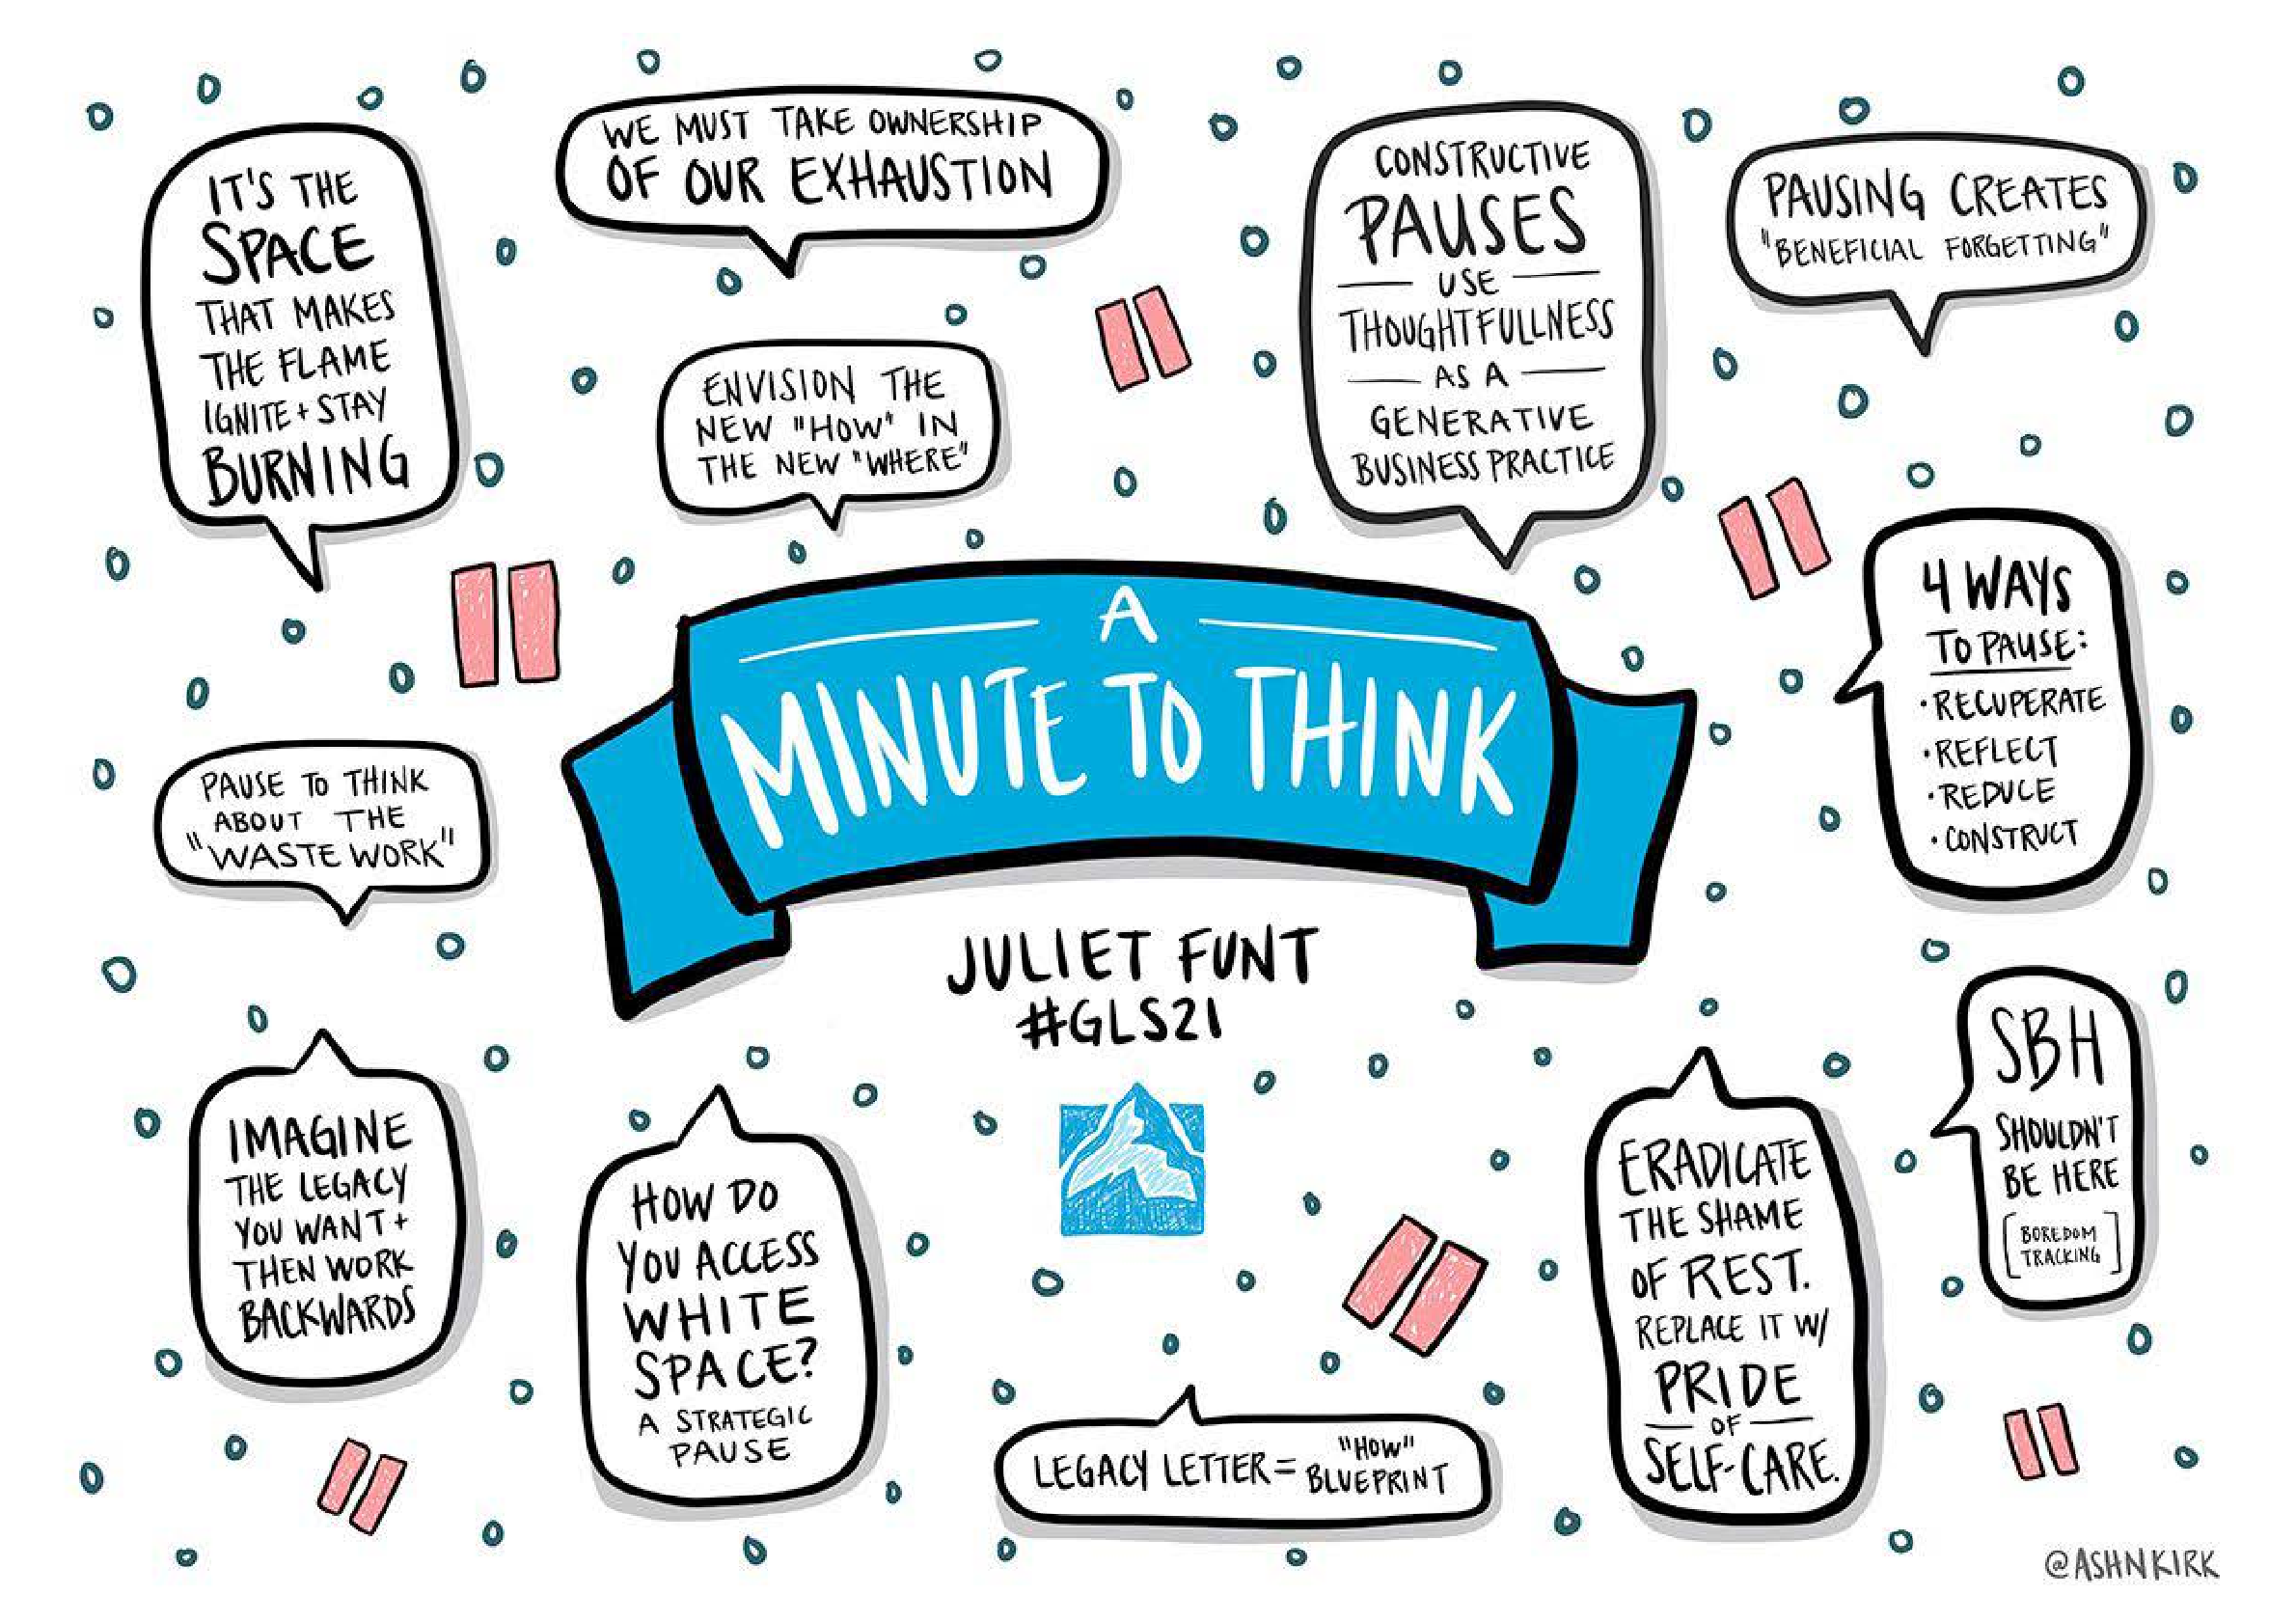 IT'S THE
SPACE
THAT MAKES
THE FLAME
IGNITE + STAY
BURNING
WE MUST TAKE OWNERSHIP
OF OUR EXHAUSTION
ENVISION THE
NEW "HOW" IN
THE NEW "WHERE"
CONSTRUCTIVE
PAUSES
USE
THOUGHTFULLNESS
AS A
GENERATIVE
BUSINESS PRACTICE
PAUSING CREATES
"BENEFICIAL FORGETTING"
4 WAYS
TO PAUSE:
• RECUPERATE
• REFLECT
• REDUCE
• CONSTRUCT
A
MINUTE TO THINK
JULIET FUNT
#GLS21
PAUSE TO THINK
ABOUT THE
"WASTE WORK"
IMAGINE
THE LEGACY
YOU WANT +
THEN WORK
BACKWARDS
HOW DO
YOU ACCESS
WHITE
SPACE?
A STRATEGIC
PAUSE
LEGACY LETTER = "HOW"
BLUEPRINT
ERADICATE
THE SHAME
OF REST.
REPLACE IT W/
PRIDE
OF
SELF-CARE.
SBH
SHOULDN'T
BE HERE
[BOREDOM
TRACKING]
@ASHNKIRK